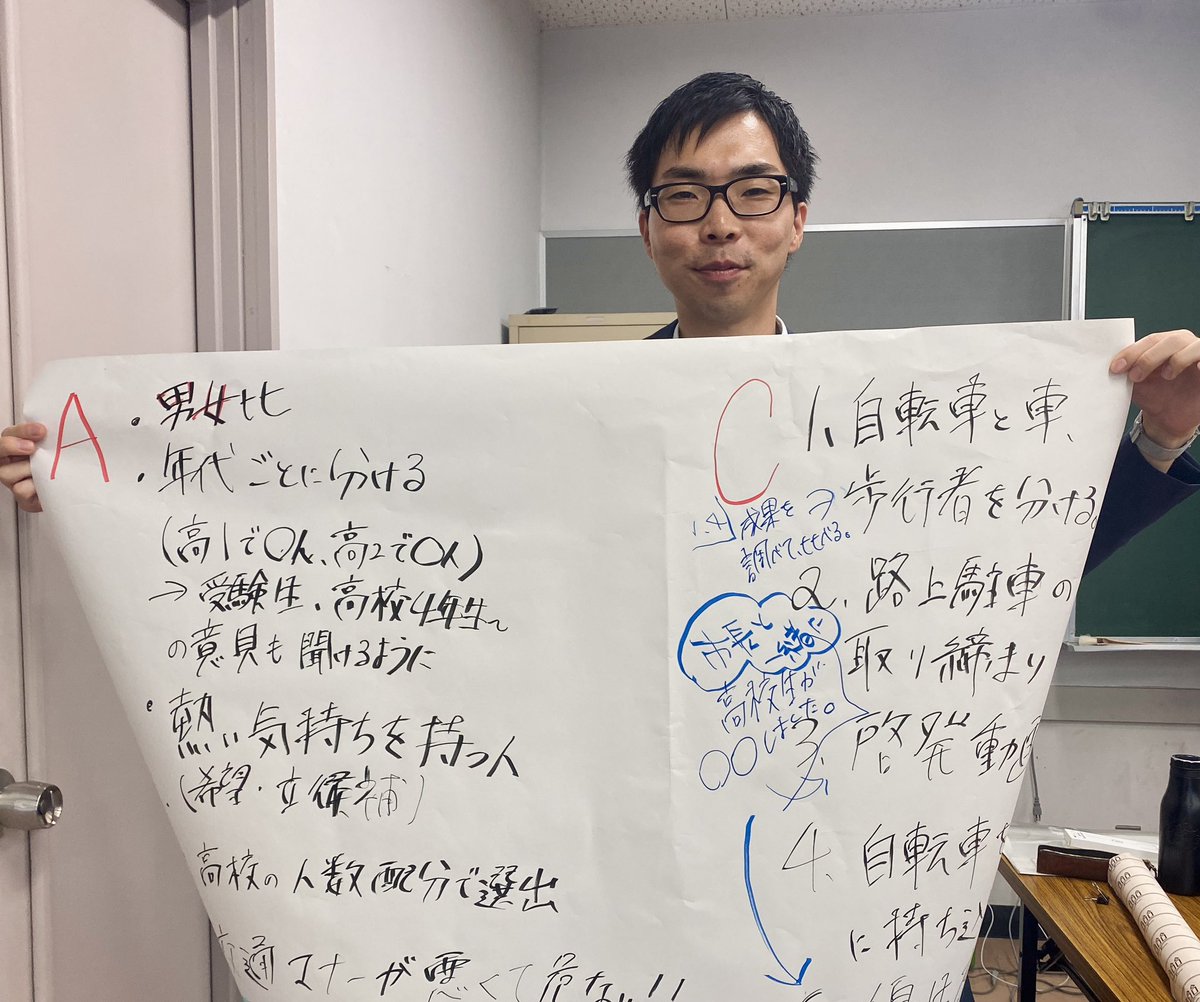 A
・男女比
・年代ごとに分ける
(高1で〇人、高2で〇人)
→受験生、高校4年生
の意見も聞けるように
・熱い気持ちを持つ人
・(希望・立候補)
高校の人数配分で選出
交通マナーが悪くて危ない!!
C
1、自転車と車、
歩行者を分ける。
成果を
調べて、比べる。
2、路上駐車の
取り締まり
市県と
一緒に
高校生が
〇〇しました。
3、啓発動画
4、自転車を
に持ち込